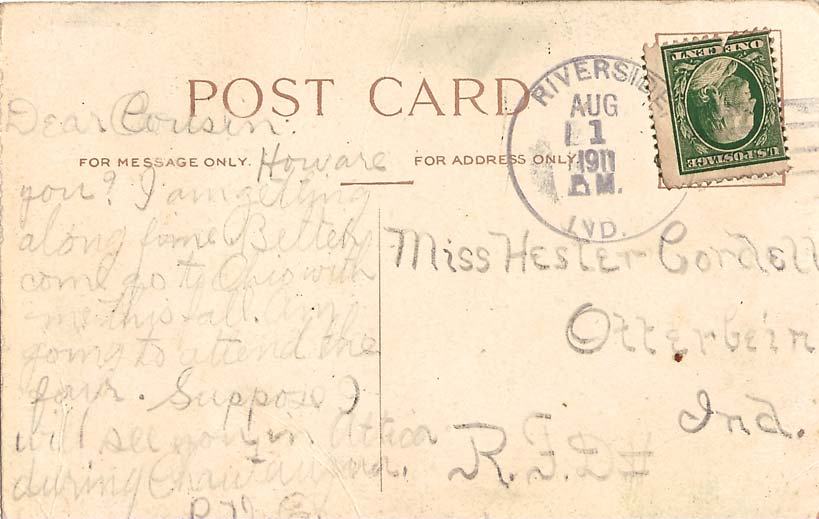 POST CARD
FOR MESSAGE ONLY.
FOR ADDRESS ONLY.
RIVERSIDE
AUG
1
1911
M.
IND.
ONE CENT
U.S. POSTAGE
Dear Cousin.
How are
you? I am getting
along fine. Better
come go to Ohio with
me this fall. Am
going to attend the
fair. Suppose I
will see you in Attica
during
Miss Hester Cordell
Otterbein
Ind.
R.F.D#